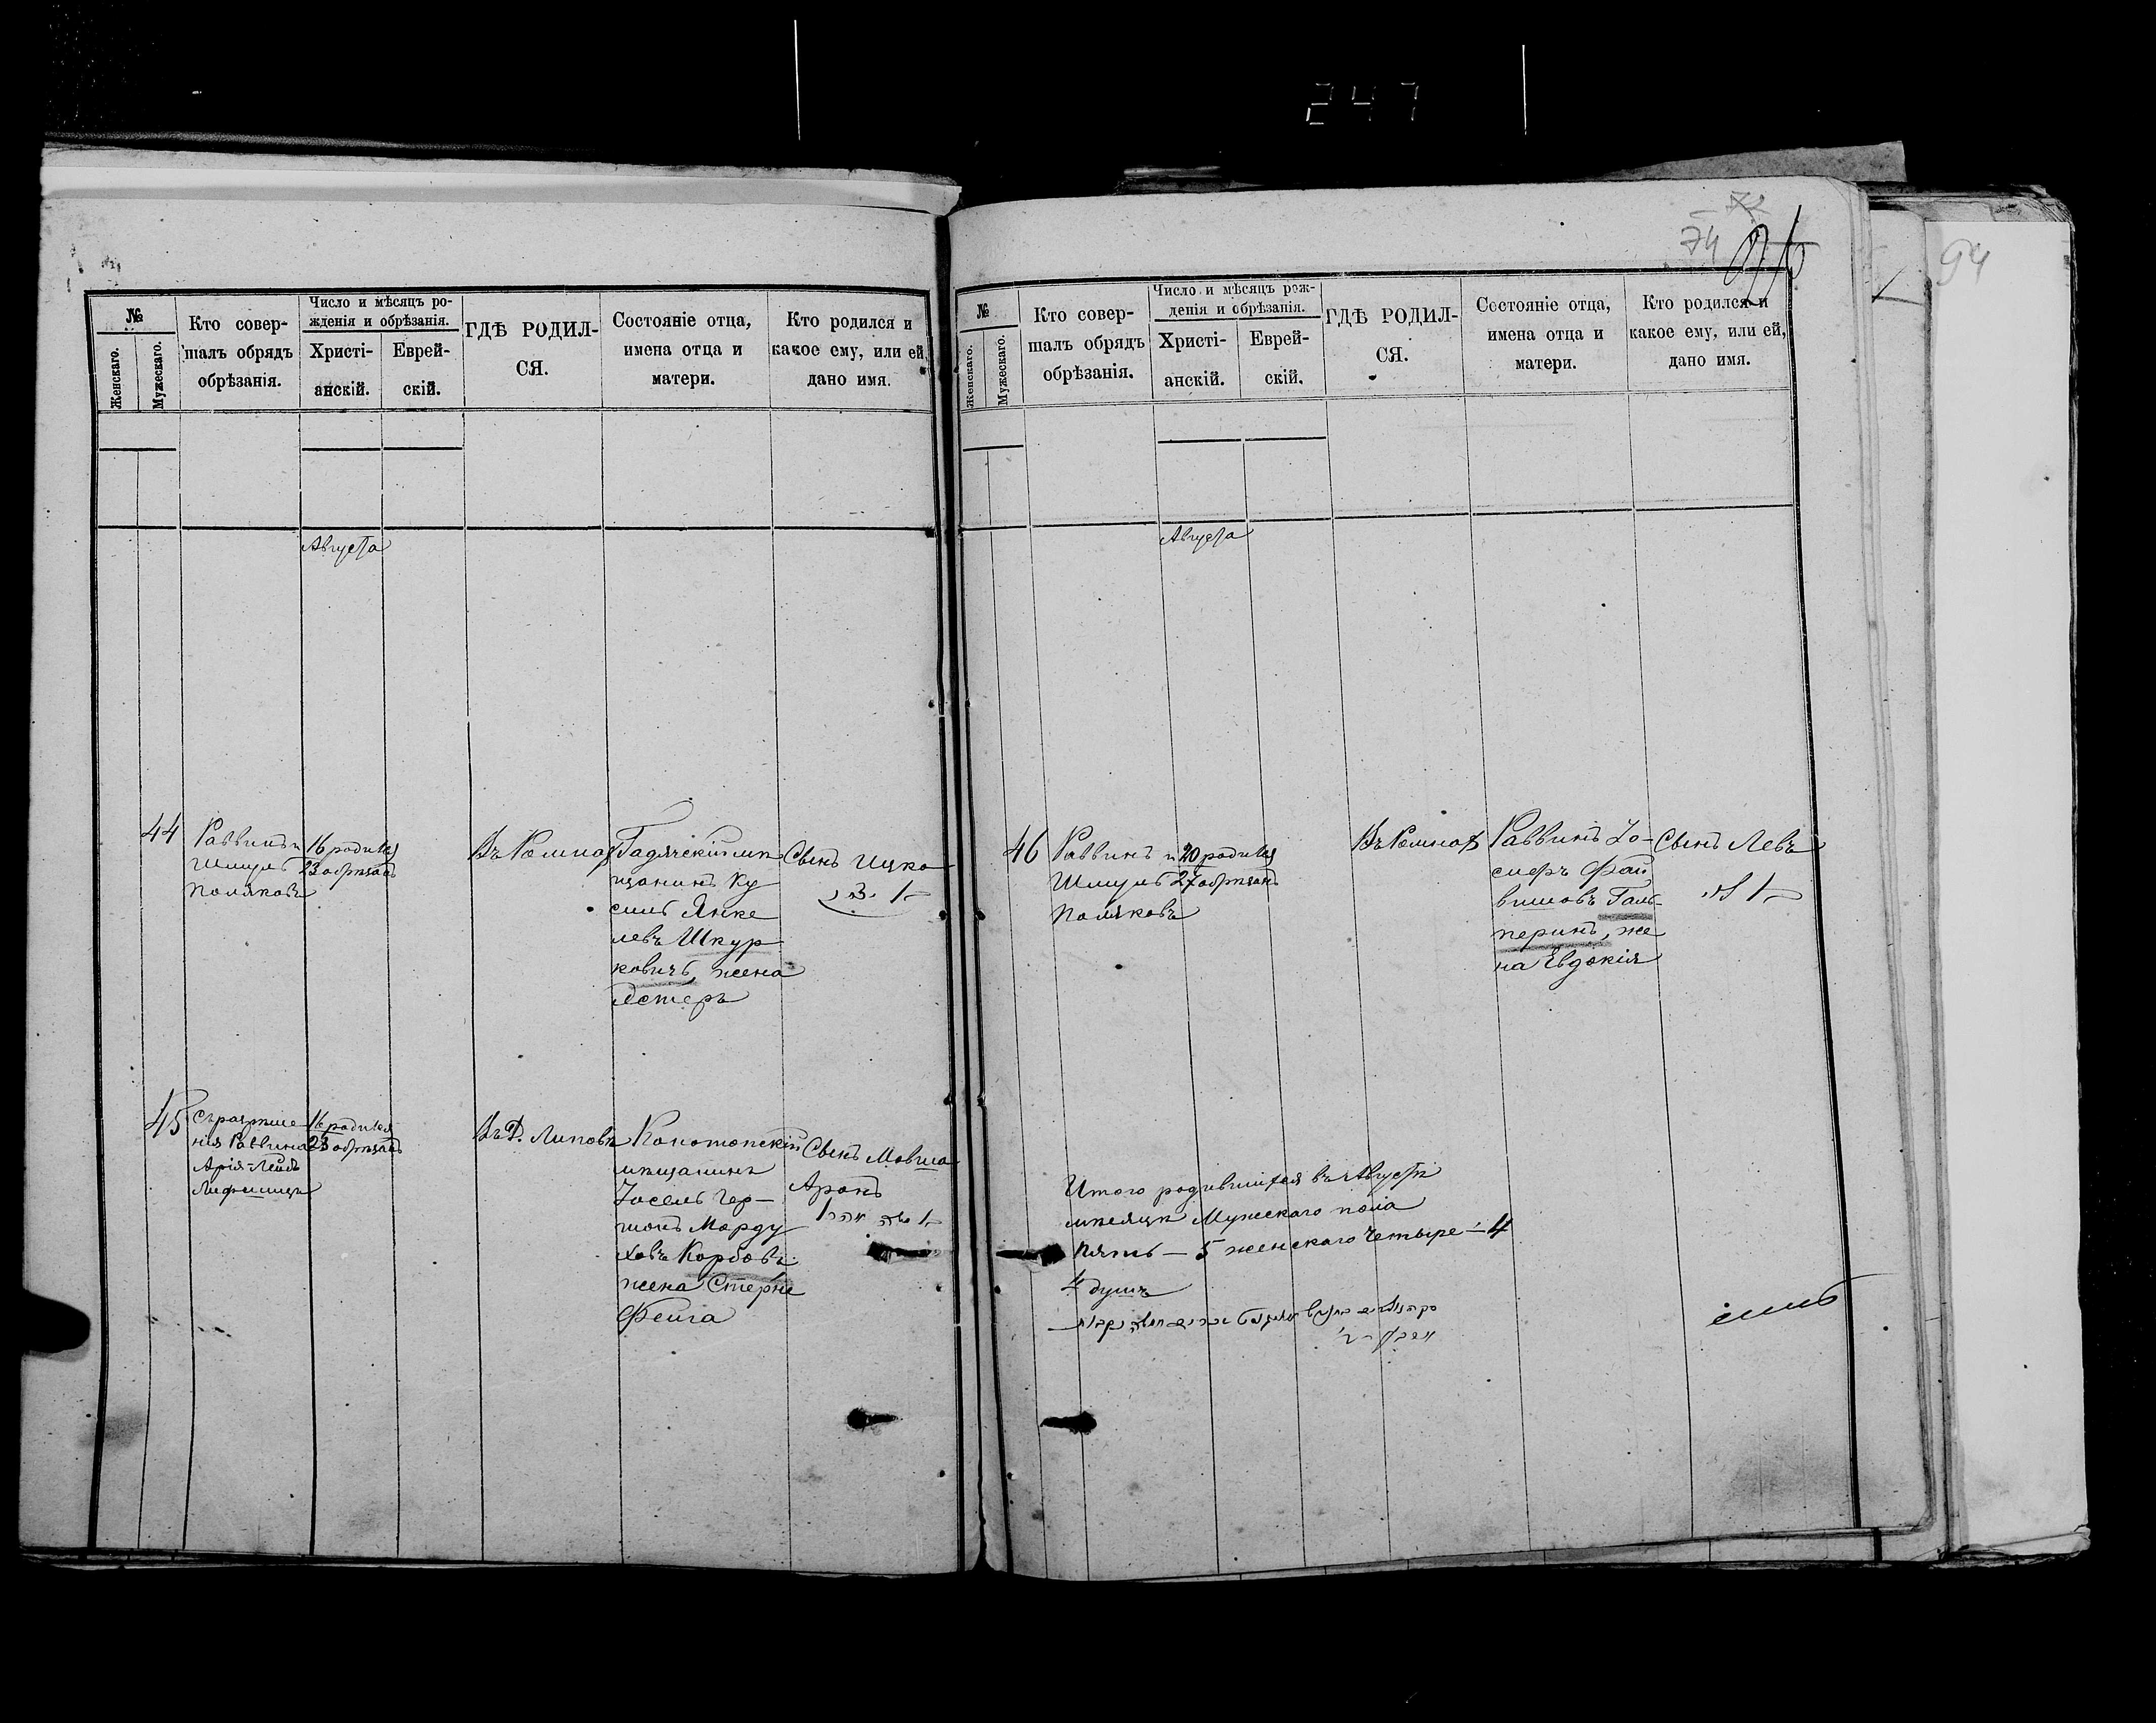 247
№
Женскаго.
Мужескаго.
Кто совер-
шалъ обрядъ
обрѣзанія.
Число и мѣсяцъ ро-
жденія и обрѣзанія.
Христі-
анскій.
Еврей-
скій.
ГДѢ РОДИЛ-
СЯ.
Состояніе отца,
имена отца и
матери.
Кто родился и
какое ему, или ей,
дано имя.
Августа
44
Раввинъ и
Шмуль
Поляковъ
16 родился
23 обрѣзанъ
Въ Ромнах
Гадячскій мѣ
щанинъ Ку
силь Янке
левъ Шкур
ковичъ, жена
Эстеръ
Сынъ Ицко
45
Съ разрѣше
нія Раввина
Арія-Лейбъ
16 родился
23 обрѣзанъ
Въ Д. Липовъ
Конотопскій
мѣщанинъ
Іосель Гер-
шонъ Морду
ховъ Корбовъ
жена Стерне
Фейга
Сынъ Мовша
Аронъ
74
94
№
Женскаго.
Мужескаго.
Кто совер-
шалъ обрядъ
обрѣзанія.
Число и мѣсяцъ рож-
денія и обрѣзанія.
Христі-
анскій.
Еврей-
скій.
ГДѢ РОДИЛ-
СЯ.
Состояніе отца,
имена отца и
матери.
Кто родился и
какое ему, или ей,
дано имя.
Августа
46
Раввинъ и
Шмуль
Поляковъ
20 родился
27 обрѣзанъ
Въ Ромнах
Раввинъ Іо-
сифъ Фай
вишовъ Галь-
перинъ, же
на Евдокія
Сынъ Левъ
Итого родившихся въ Августѣ
мѣсяцѣ Мужескаго пола
пять — 5 женскаго четыре — 4
душъ